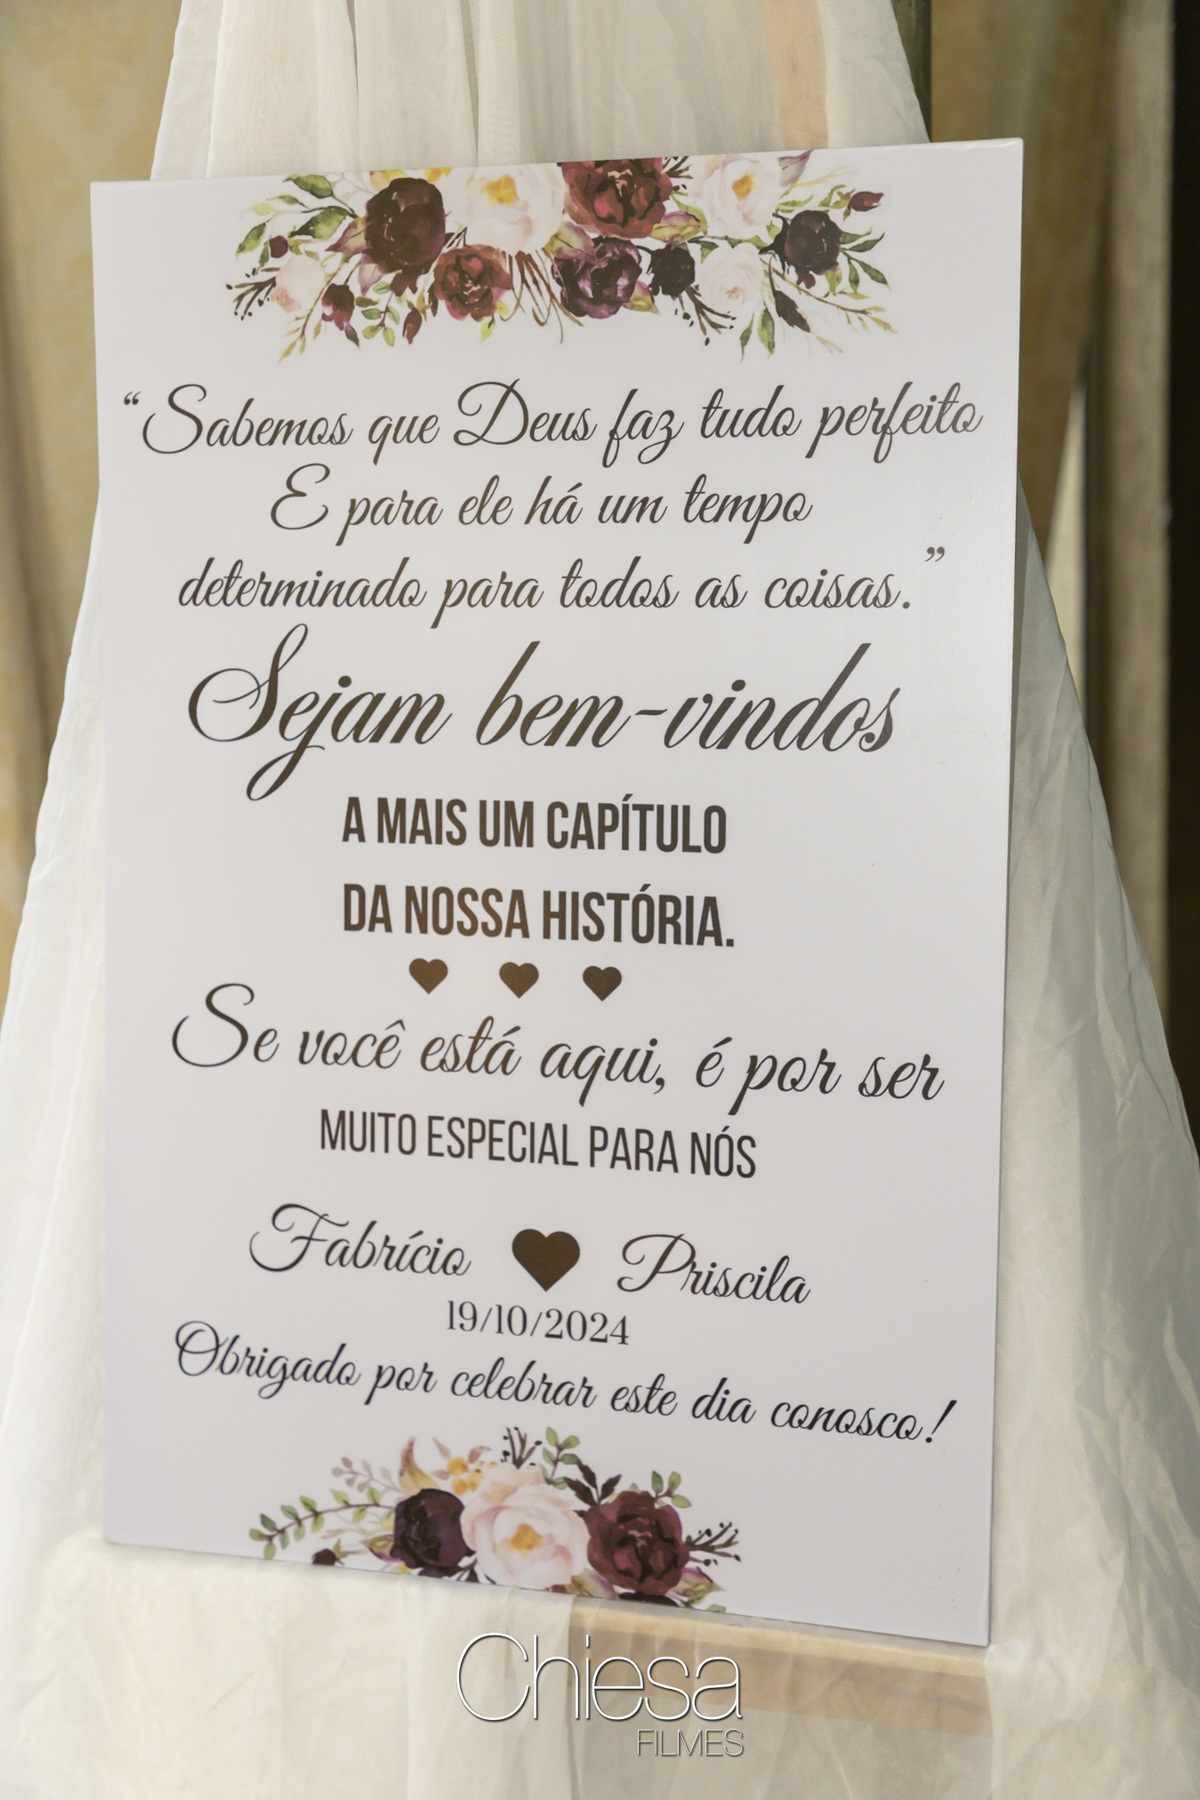 “Sabemos que Deus faz tudo perfeito
E para ele há um tempo
determinado para todos as coisas.”
Sejam bem-vindos
A MAIS UM CAPÍTULO
DA NOSSA HISTÓRIA.
Se você está aqui, é por ser
MUITO ESPECIAL PARA NÓS
Fabrício Priscila
19/10/2024
Obrigado por celebrar este dia conosco!
Chiesa
FILMES